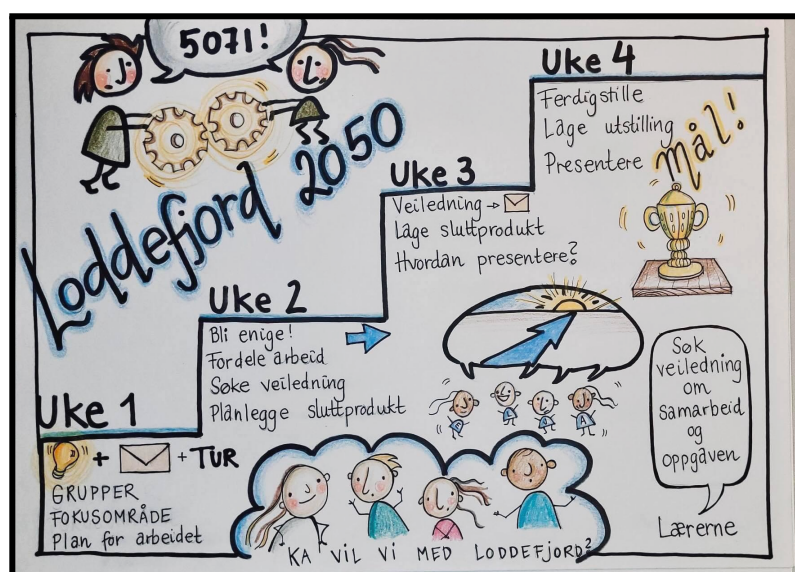 5071!
Loddefjord 2050
Uke 1
+ + TUR
GRUPPER
FOKUSOMRÅDE
Plan for arbeidet
Uke 2
Bli enige!
Fordele arbeid
Søke veiledning
Planlegge sluttprodukt
Uke 3
Veiledning →
Lage sluttprodukt
Hvordan presentere?
Uke 4
Ferdigstille
Lage utstilling
Presentere
Mål!
Søk
veiledning
om
samarbeid
og
oppgaven
Lærerne
KA VIL VI MED LODDEFJORD?